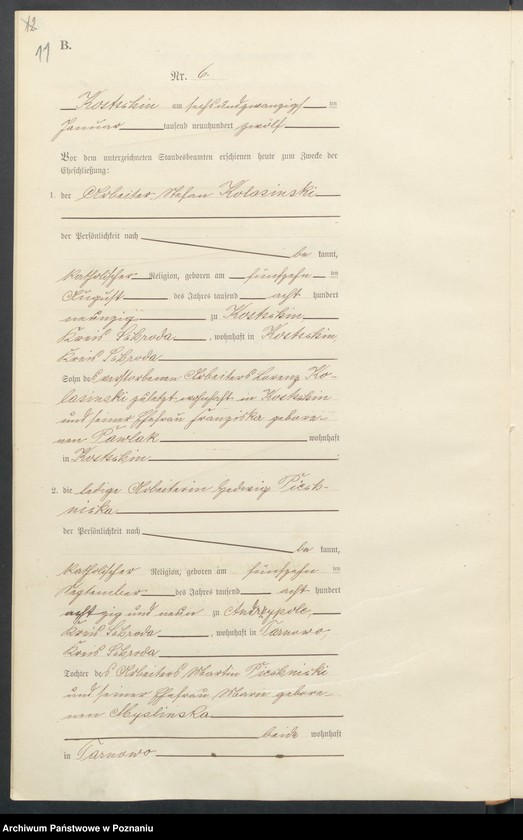 12
11
B.
Nr. 6.
Kostschin am sechsundzwanzigsten
Januar tausend neunhundert zwölf
Vor dem unterzeichneten Standesbeamten erschienen heute zum Zwecke der
Eheschließung:
1. der Arbeiter Stefan Kolasinski
der Persönlichkeit nach
be kannt,
katholischer Religion, geboren am fünfzehn ten
August des Jahres tausend acht hundert
neunzig zu Kostschin
Kreis Schroda, wohnhaft in Kostschin,
Kreis Schroda
Sohn des verstorbenen Arbeiters Lorenz Ko-
lasinski zuletzt wohnhaft in Kostschin
und seiner Ehefrau Franziska gebore-
nen Pawlak wohnhaft
in Kostschin
2. die ledige Arbeiterin Hedwig Piech-
niska
der Persönlichkeit nach
be kannt,
katholischer Religion, geboren am fünfzehn ten
September des Jahres tausend acht hundert
achtzig und neun zu Andrzypole,
Kreis Schroda, wohnhaft in Tarnowo,
Kreis Schroda
Tochter des Arbeiters Martin Piechniski
und seiner Ehefrau Marie gebore-
nen Myslinska
beide wohnhaft
in Tarnowo
Archiwum Państwowe w Poznaniu